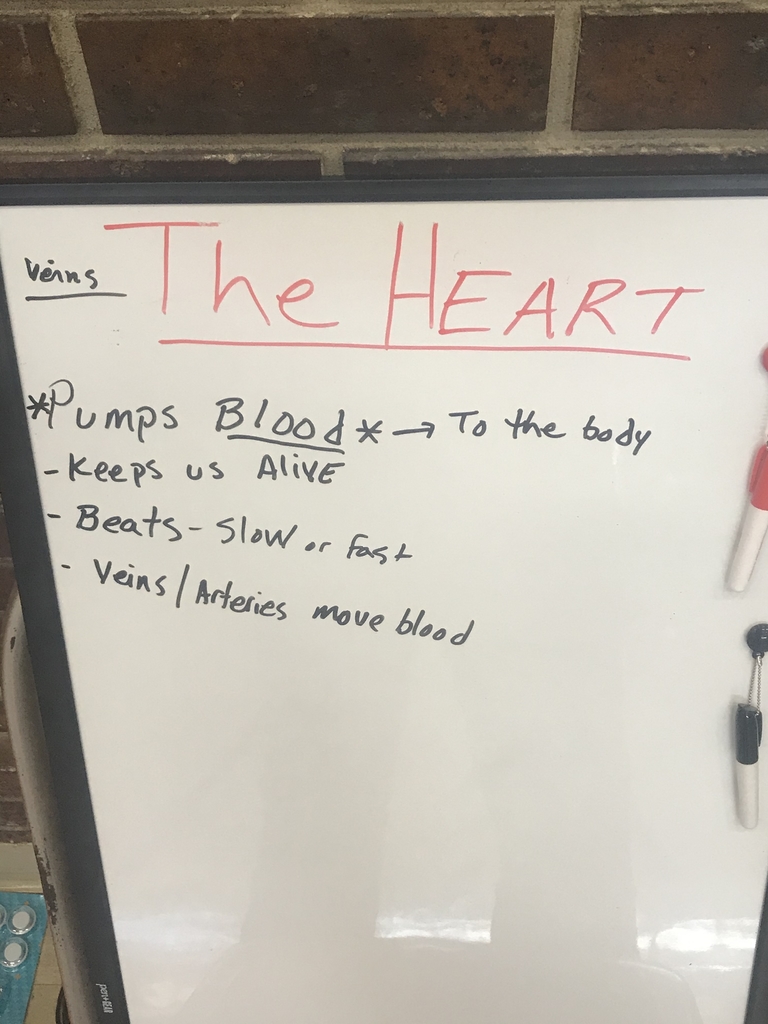 The HEART
Veins
*Pumps Blood* → To the body
- Keeps us Alive
- Beats - Slow or fast
- Veins/Arteries move blood